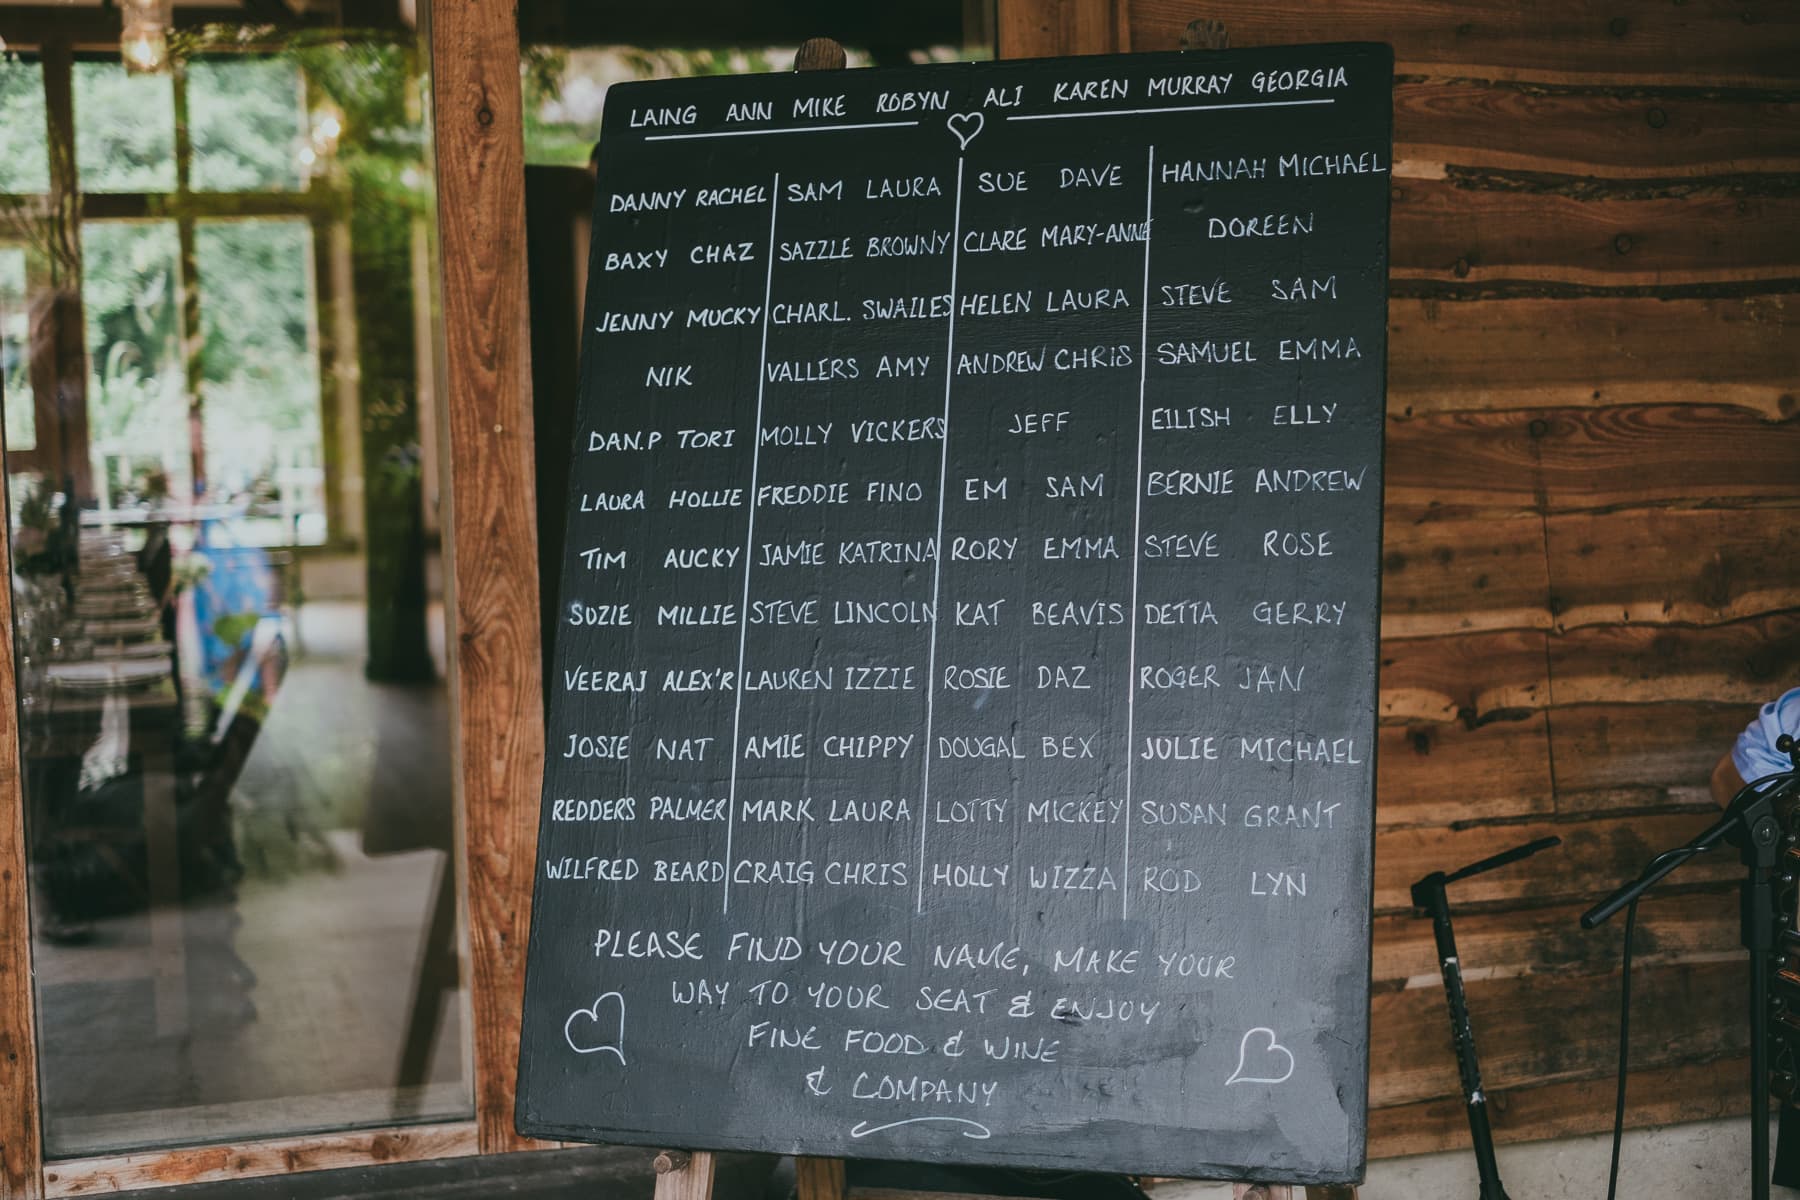 LAING ANN MIKE ROBYN ALI KAREN MURRAY GEORGIA
DANNY RACHEL SAM LAURA SUE DAVE HANNAH MICHAEL
BAXY CHAZ SAZZLE BROWNY CLARE MARY-ANNE DOREEN
JENNY MUCKY CHARL. SWAILES HELEN LAURA STEVE SAM
NIK VALLERS AMY ANDREW CHRIS SAMUEL EMMA
DAN.P TORI MOLLY VICKERS JEFF EILISH ELLY
LAURA HOLLIE FREDDIE FINO EM SAM BERNIE ANDREW
TIM AUCKY JAMIE KATRINA RORY EMMA STEVE ROSE
SUZIE MILLIE STEVE LINCOLN KAT BEAVIS DETTA GERRY
VEERAJ ALEX'R LAUREN IZZIE ROSIE DAZ ROGER JAN
JOSIE NAT AMIE CHIPPY DOUGAL BEX JULIE MICHAEL
REDDERS PALMER MARK LAURA LOTTY MICKEY SUSAN GRANT
WILFRED BEARD CRAIG CHRIS HOLLY WIZZA ROD LYN
PLEASE FIND YOUR NAME, MAKE YOUR
WAY TO YOUR SEAT & ENJOY
FINE FOOD & WINE
& COMPANY